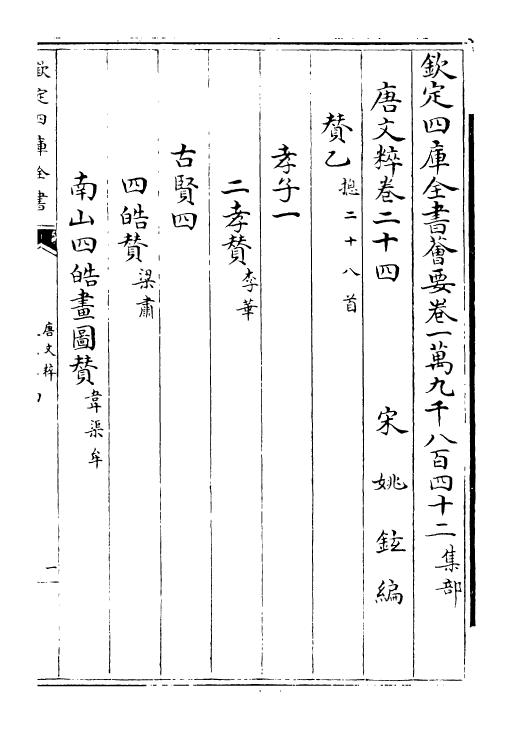 欽定四庫全書薈要卷一萬九千八百四十二集部
唐文粹卷二十四 宋 姚鉉編
賛乙總二十八首
孝子一
二孝賛李華
古賢四
四皓賛梁肅
南山四皓畫圖賛韋渠牟
欽定四庫全書
唐文粹
一